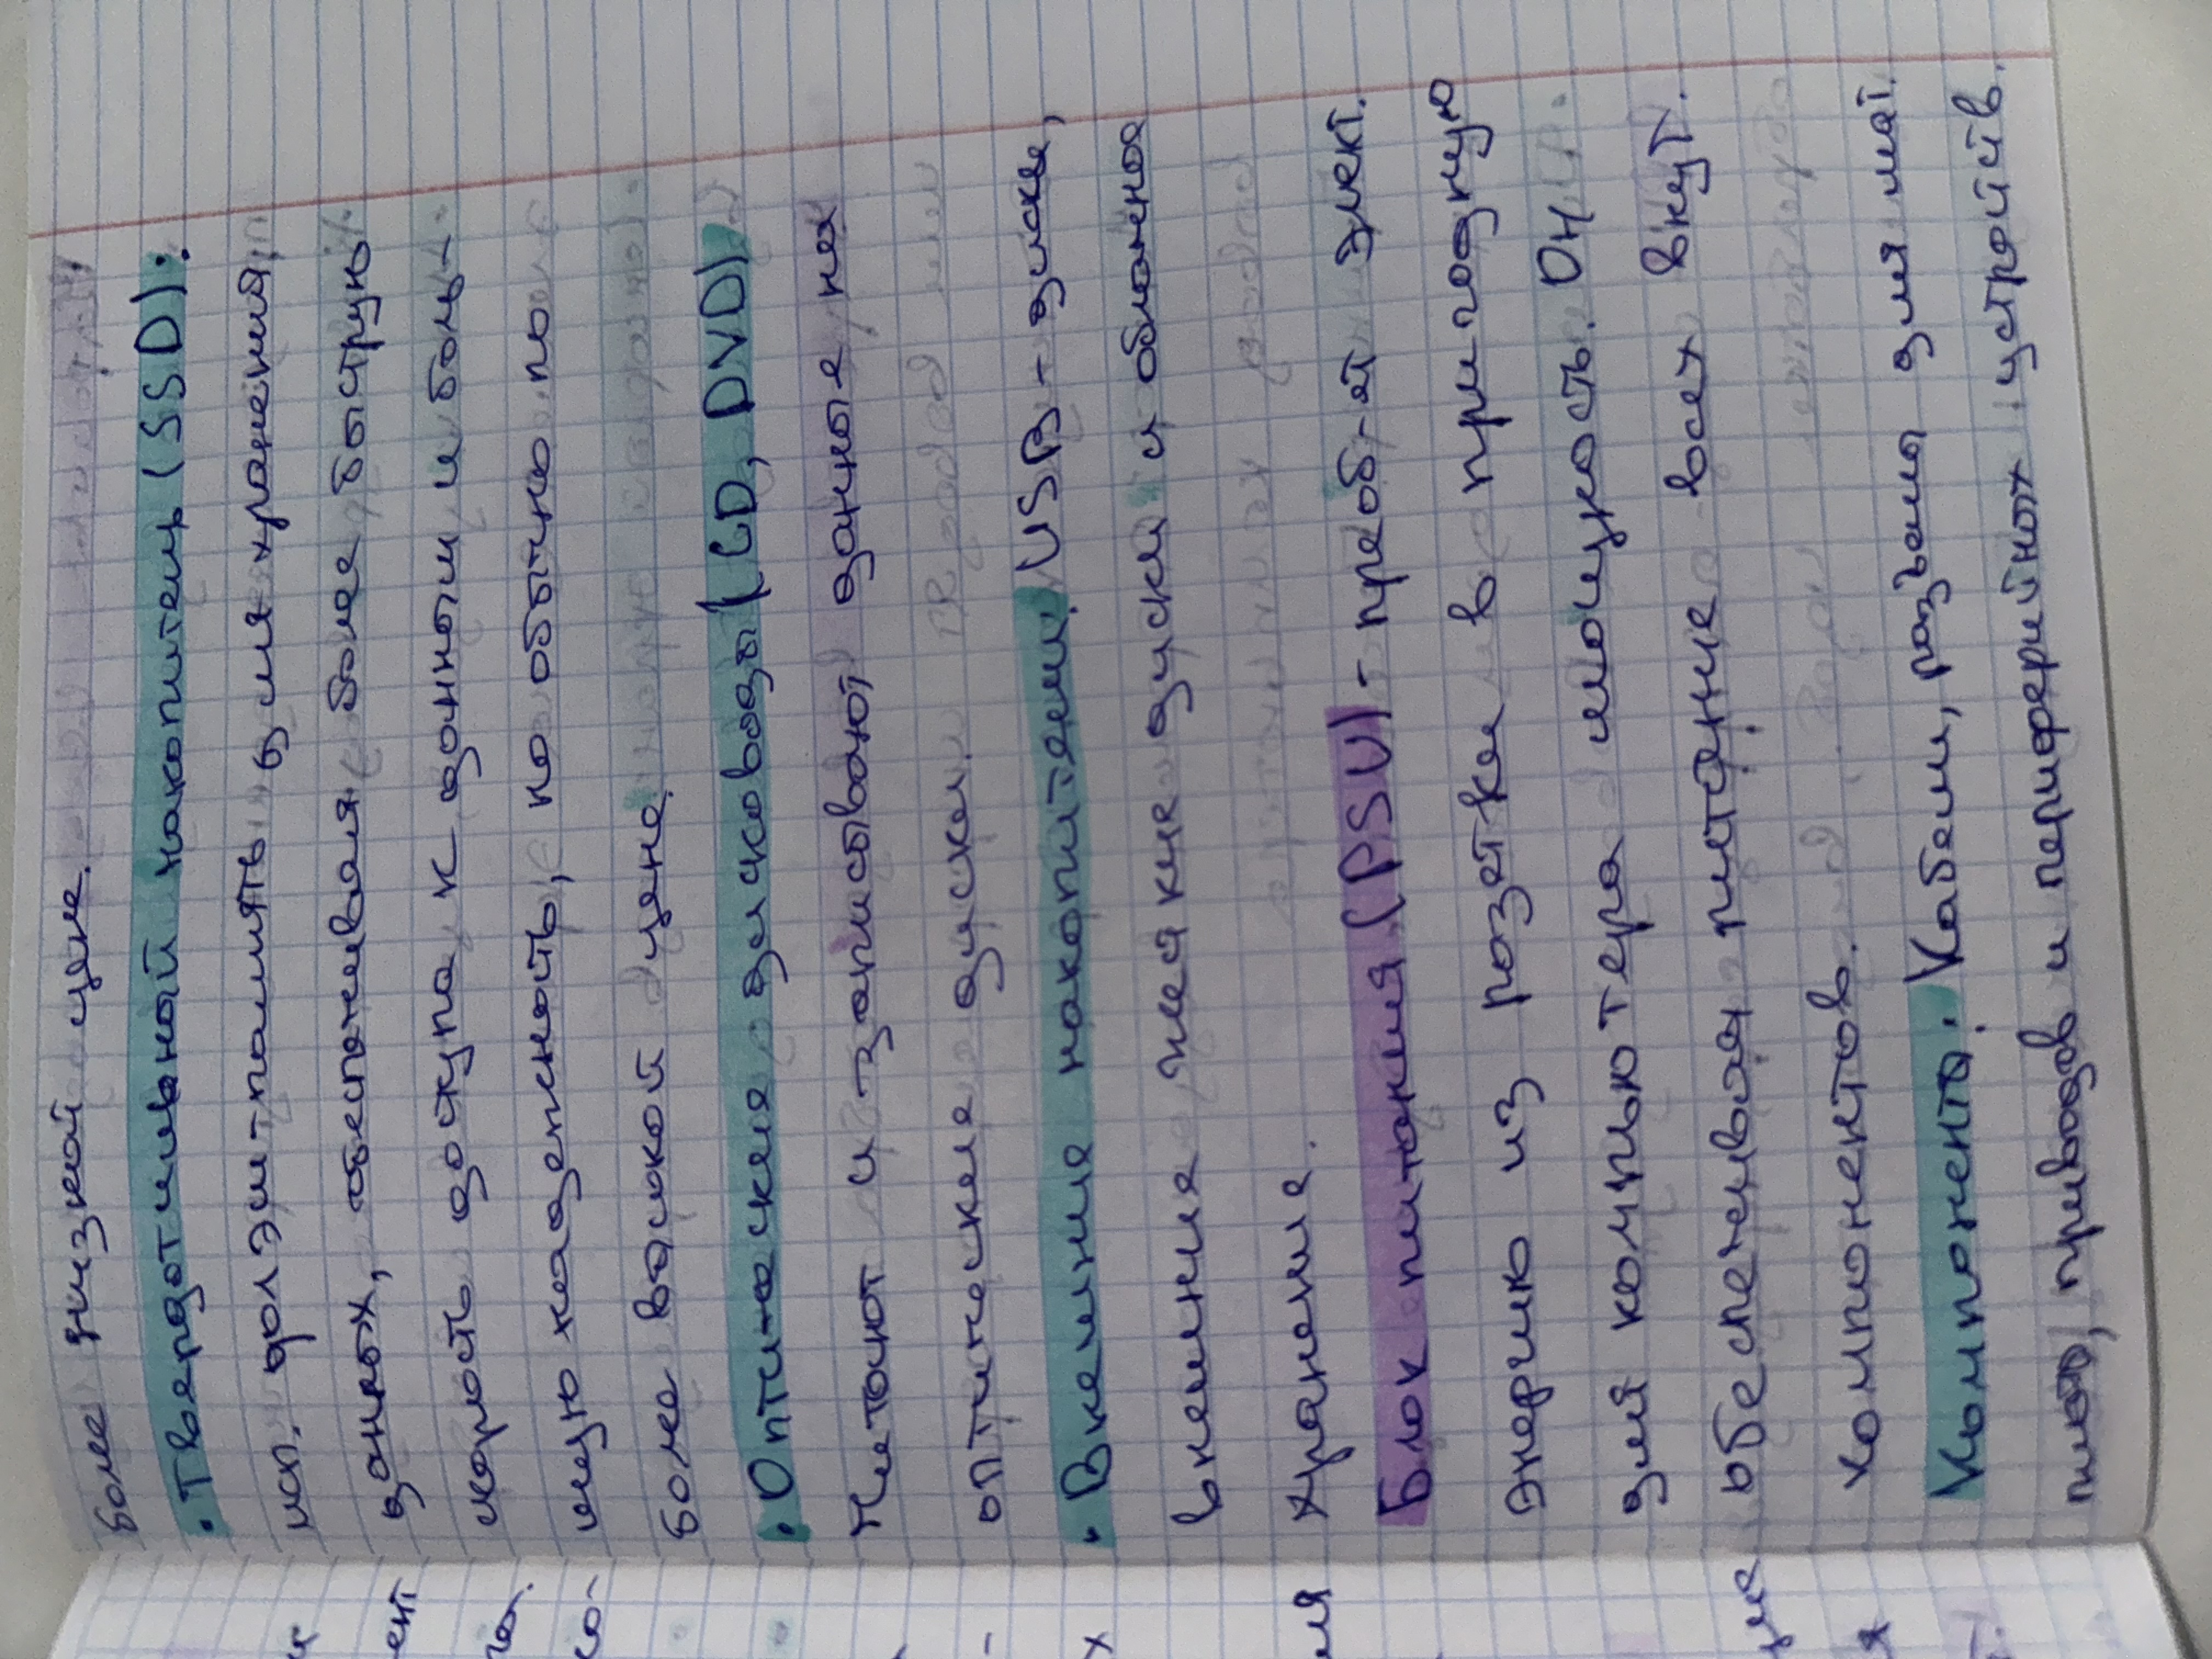 более низкой цене.
• Твердотильный накопитель (SSD):
исп. флэш-память для хранения
данных, обеспечивая более быструю
скорость доступа к данным и боль-
шую надежность, но обычно по
более высокой цене.
• Оптические дисководы (CD, DVD)
Читают и записывают данные на
оптические диски.
• Внешние накопители: USB-диски,
внешние жесткие диски и облачное
хранение.
Блок питания (PSU) - преоб-ет элект.
энергию из розетки в пригодную
для компьютера мощность. Он
обеспечивая питание всех внут.
компонентов.
Компонента: Кабели, разъемы для мат.
платы, приводов и периферийных устройств.
ент
со-
-
х
ля
я